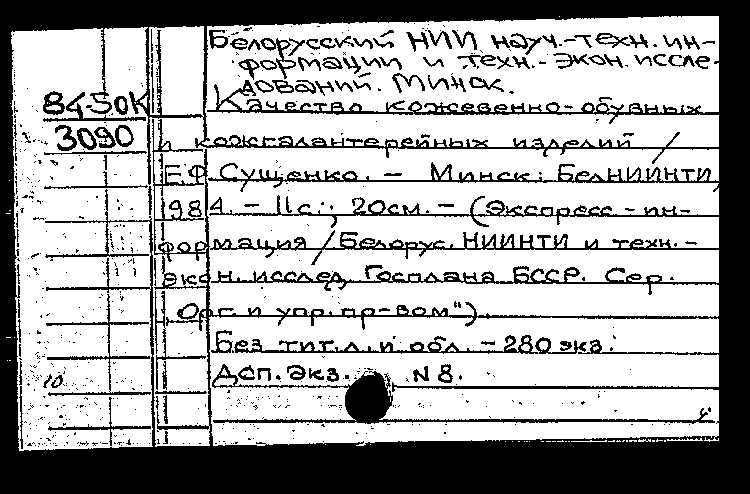 Белорусский НИИ науч.-техн. ин-
формации и техн.-экон. иссле-
дований. Минск.
84-5ОК
3090
Качество кожевенно-обувных
и кожгалантерейных изделий /
Е.Ф. Сущенко. - Минск: БелНИИНТИ,
1984. - 11с.; 20см. - (Экспресс-ин-
формация / Белорус. НИИНТИ и техн.-
экон. исслед. Госплана БССР. Сер.
"Орг. и упр. пр-вом").
Без тит.л. и обл. - 280 экз.
Доп. экз. N 8.
10